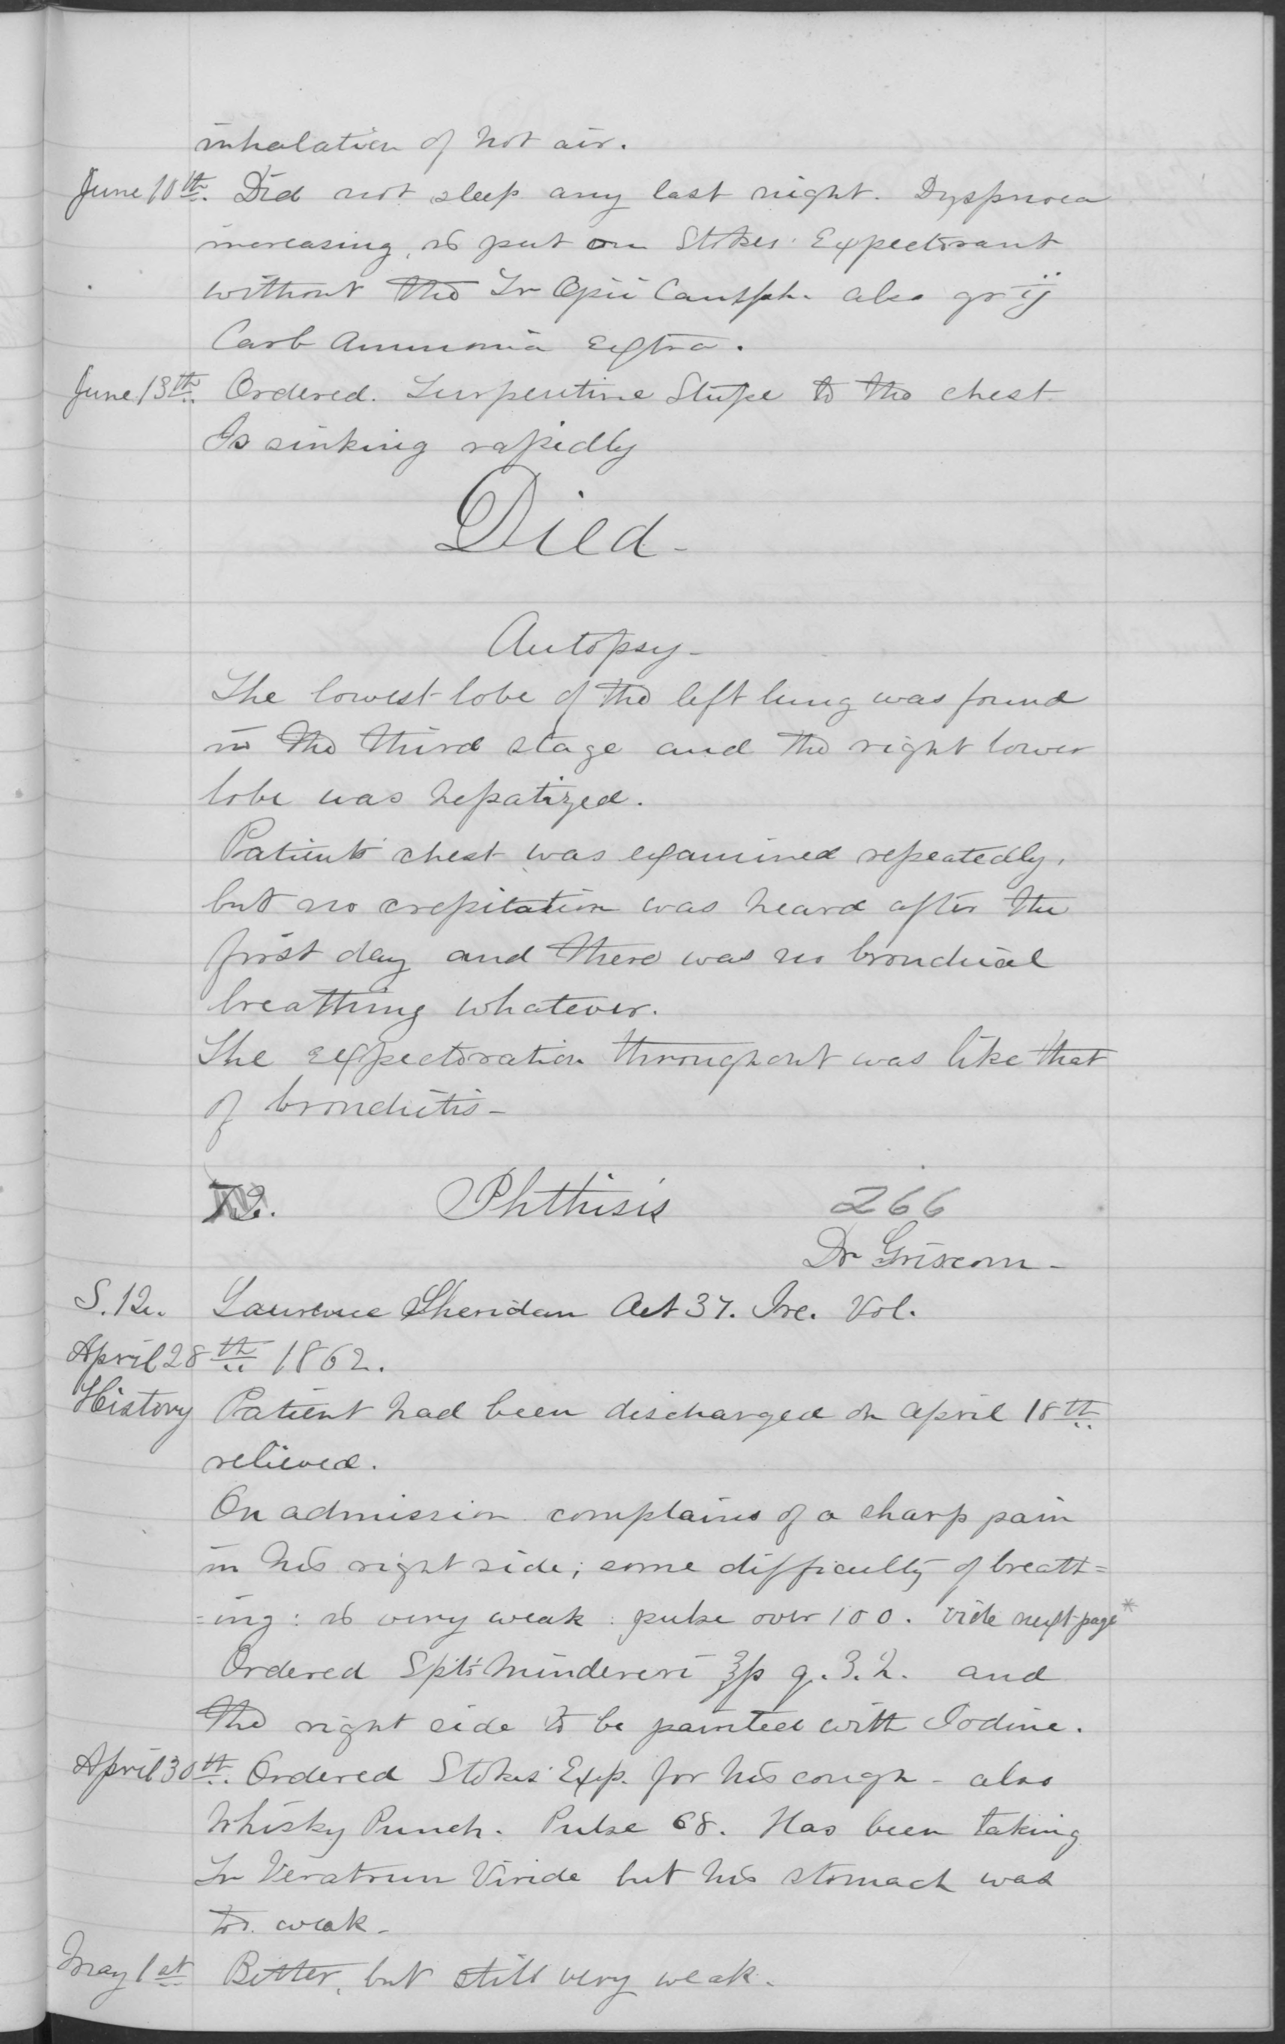 inhalation of hot air.
June 10th. Did not sleep any last night. Dyspnoea
increasing, is put on Stokes' Expectorant
without the Tr Opii Camph. also gr ij
Carb Ammonia extra.
June 13th. Ordered. Turpentine Stupe to the chest
Is sinking rapidly
Died-
Autopsy-
The lowest lobe of the left lung was found
in the third stage and the right lower
lobe was hepatized.
Patients chest was examined repeatedly,
but no crepitation was heard after the
first day and there was no bronchial
breathing whatever.
The expectoration throughout was like that
of bronchitis-
72. Phthisis 266
Dr Griscom-
S. 12. Laurence Sheridan Aet 37. Ire. Vol.
April 28th 1862.
History Patient had been discharged on April 18th
relieved.
On admission complains of a sharp pain
in his right side; some difficulty of breath=
=ing: is very weak: pulse over 100. vide next page*
Ordered Spts Mindereri ℥p q. 3. h. and
the right side to be painted with Iodine.
April 30th. Ordered Stokes' Exp. for his cough - also
Whisky Punch. Pulse 68. Has been taking
Tr Veratrum Viride but his stomach was
too weak-
May 1st Better, but still very weak.